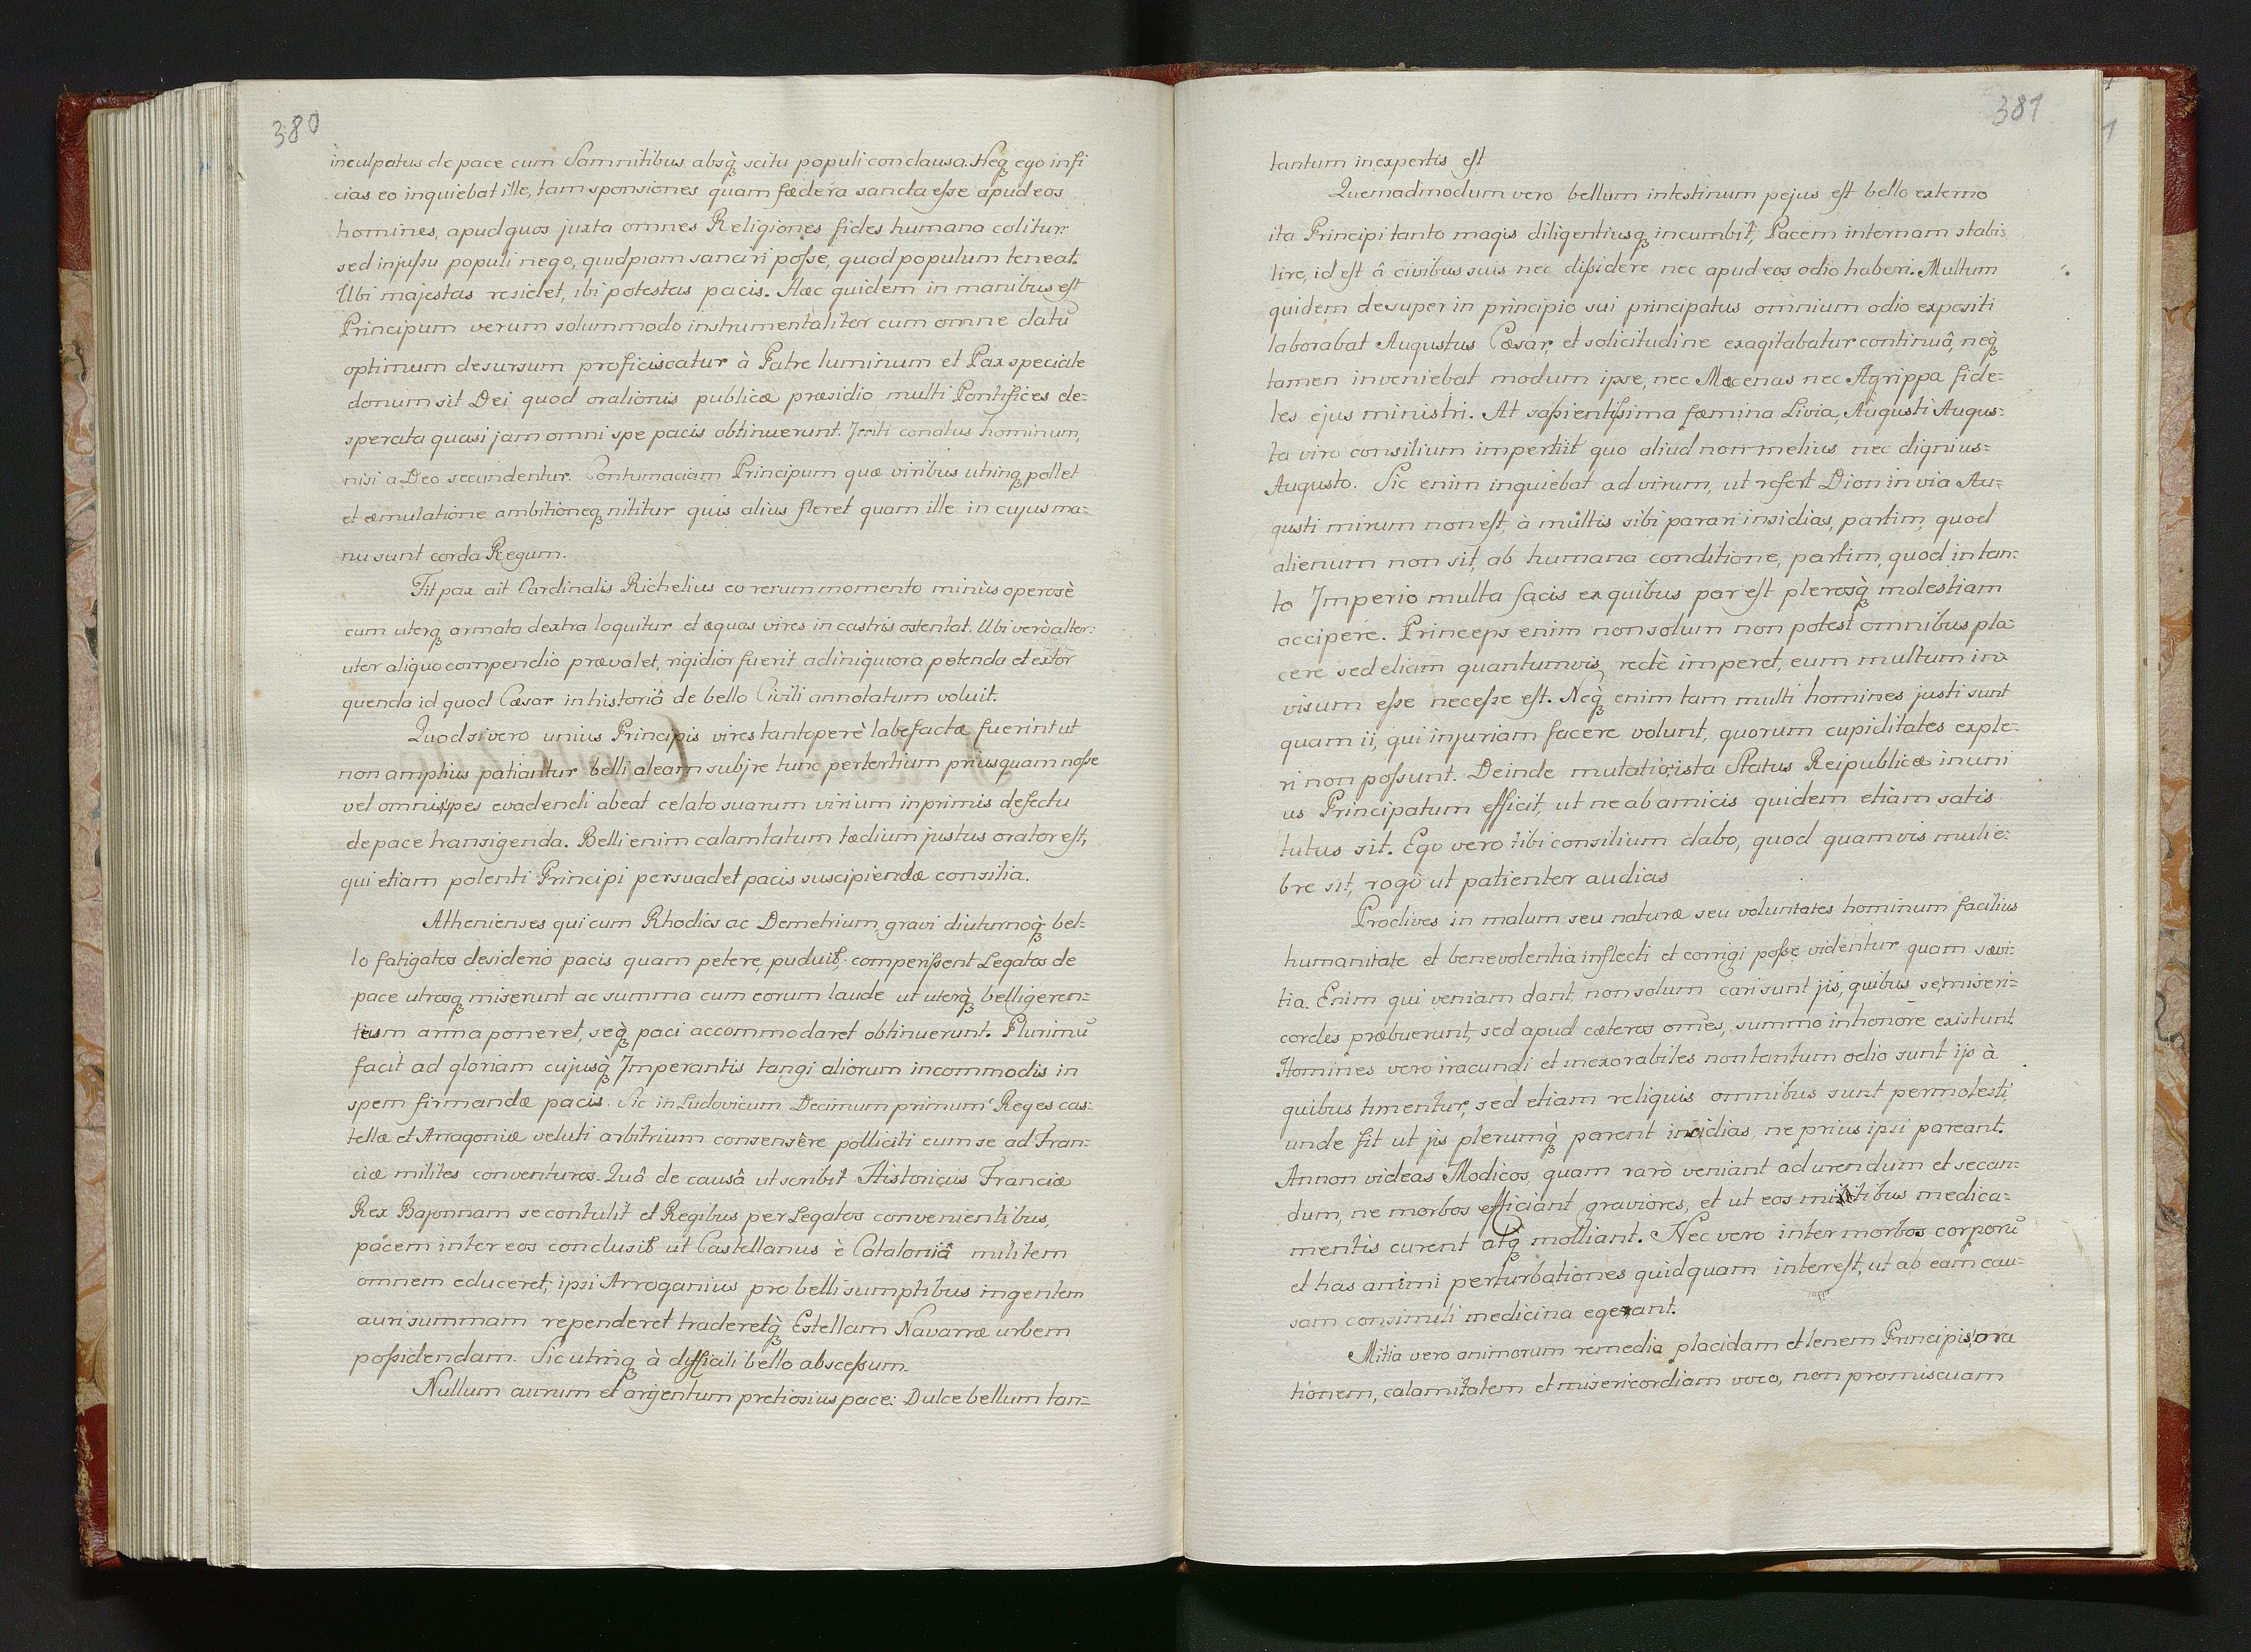 380
inculpatus de pace cum Samnitibus absq̀ scitu populi conclausa. Neq ego infi
cias eo inquiebat ille, tam sponsiones quam fœdera sancta esse apud eos
homines, apud quos juxta omnes Religiones fides humana colitur:
sed injussu populi nego, quidpiam sanciri posse, quod populum teneat.
Ubi majestas residet, ibi potestas pacis. Hæc quidem in manibus est
Principum verum solummodo instrumentaliter cum omne datū
optimum desursum proficiscatur à Patre luminum et Pax speciale
donum sit Dei quod orationis publicæ præsidio multi Pontifices de=
sperata quasi jam omni spe pacis obtinuerunt. Irriti conatus hominum,
nisi a Deo secundentur. Contumaciam Principum quæ viribus utrinq pollet
et æmulatione ambitioneq nititur quis alius fleret quam ille in cujus ma=
nu sunt corda Regum.
Fit pax ait Cardinalis Richelius eo rerum momento minùs operosè
cum uterq armata dextra loquitur et æquas vires in castris ostentat. Ubi verò alter:
uter aliquo compendio prævalet, rigidior fuerit ad iniquiora petenda et extor
quenda id quod Cæsar in historiâ de bello Civili annotatum voluit.
Quod si vero unius Principis vires tantoperè labefactæ fuerint ut
non amplius patiantur belli aleam subjre tunc per tertium priusquam nosse
vel omnis spes evadendi abeat celato suarum virium inprimis defectu
de pace transigenda. Belli enim calamtatum tædium justus orator est,
qui etiam potenti Principi persuadet pacis suscipiendæ consilia.
Athenienses qui cum Rhodios ac Demetrium gravi diuturnoq̀ bel=
lo fatigatos desiderio pacis quam petere, puduit, comperissent Legatos de
pace utrosq miserunt ac summa cum eorum laude ut uterq̀ belligeren=
tium arma poneret, seq̀ paci accommodaret obtinuerunt. Plurimū
facit ad gloriam cujusq̀ Imperantis tangi aliorum incommodis in
spem firmandæ pacis. Sic in Ludovicum Decimum primum Reges cas=
tellæ et Arragoniæ veluti arbitrium consensêre polliciti eum se ad Fran=
ciæ milites conventuros. Quâ de causâ ut scribit Historicus Franciæ
Rex Bajonnam se contulit et Regibus per Legatos convenientibus,
pacem inter eos conclusit ut Castellanus è Cataloniâ militem
omnem educeret, ipsi Arroganius pro belli sumptibus ingentem
auri summam rependeret traderetq̀ Estellam Navarræ urbem
possidendam. Sic utrinq à difficili bello abscessum.
Nullum aurum et argentum pretiosius pace: Dulce bellum tan=
381
tantum inexpertis est
Quemadmodum vero bellum intestinum pejus est bello externo
ita Principi tanto magis diligentiusq incumbit, Pacem internam stabi=
lire, id est â civibus suis nec dissidere nec apud eos odio haberi. Multum
quidem desuper in principio sui principatus omnium odio expositi
laborabat Augustus Cæsar, et solicitudine exagitabatur continuâ, neq̀
tamen inveniebat modum ipse, nec Mæcenas nec Agrippa fide=
les ejus ministri. At sapientissima fæmina Livia, Augusti Augus=
ta viro consilium impertiit quo aliud non melius nec dignius=
Augusto. Sic enim inquiebat ad virum, ut refert Dion in via Au=
gusti mirum non est, à multis sibi parari insidias, partim, quod
alienum non sit, ab humana conditione, partim, quod in tan=
to Imperio multa facis ex quibus par est plerosq̀ molestiam
accipere. Princeps enim non solum non potest omnibus pla=
cere sed etiam quantumvis rectè imperet, eum multum inv
visum esse necesse est. Neq̀ enim tam multi homines justi sunt
quam ii, qui injuriam facere volunt, quorum cupiditates exple=
ri non possunt. Deinde mutatio ista Status Reipublicæ in uni
us Principatum efficit, ut ne ab amicis quidem etiam satis
tutus sit. Ego vero tibi consilium dabo, quod quamvis mulie=
bre sit, rogo ut patienter audias
Proclives in malum seu naturæ seu voluntates hominum facilius
humanitate et benevolentia inflecti et corrigi posse videntur quam sævi=
tia. Enim qui veniam dant, non solum cari sunt jis, quibus se miseri=
cordes præbuerunt, sed apud cæteros omēs, summo in honore existunt.
Homines vero iracundi et inexorabiles non tantum odio sunt ijs à
quibus timentur, sed etiam reliquis omnibus sunt permolesti,
unde fit ut jis plerumq̀ parent insidias, ne prius ipsi pareant.
Annon videas Modicos, quam rarò veniant ad urendum et secan=
dum, ne morbos efficiant graviores, et ut eos mitibus medica=
mentis curent atq̀ molliant. Nec vero inter morbos corporū
et has animi perturbationes quidquam interest, ut ab eam cau=
sam consimili medicina egerant.
Mitia vero animorum remedia placidam et lenem Principis, ora
tionem, calamitatem et misericordiam voco, non promiscuam